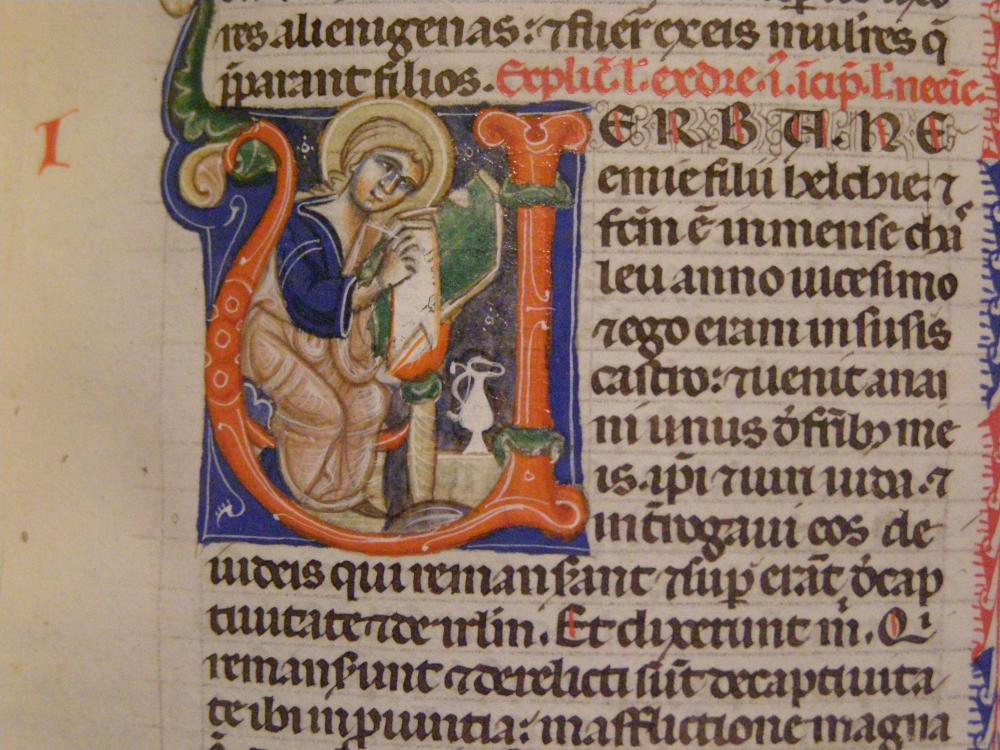 res alienigenas: ⁊ fuer̄ ex eis mulires q̄
p̄parant filios. Explic̄ l̄. exdre. i. īcip̄. l̄. neeie.
I
ERBA NE
emie filii helchie. ⁊
fc̄m ē in mense cha
leu anno uicesimo
⁊ ego eram in susis
castro: ⁊ uenit anai
ni unus d̓ fr̄ib; me
is. ip̄i ⁊ uiri iuda. ⁊
int̄rogaui eos de
iudeis qui remanserant ⁊ sup̄ erāt d̓ cap
tiuitate ⁊ de irl̄m. Et dixerunt m̄. Qi
remanserunt ⁊ derelicti sūt de captiuita
te ibi in puuntia: in afflictione magna